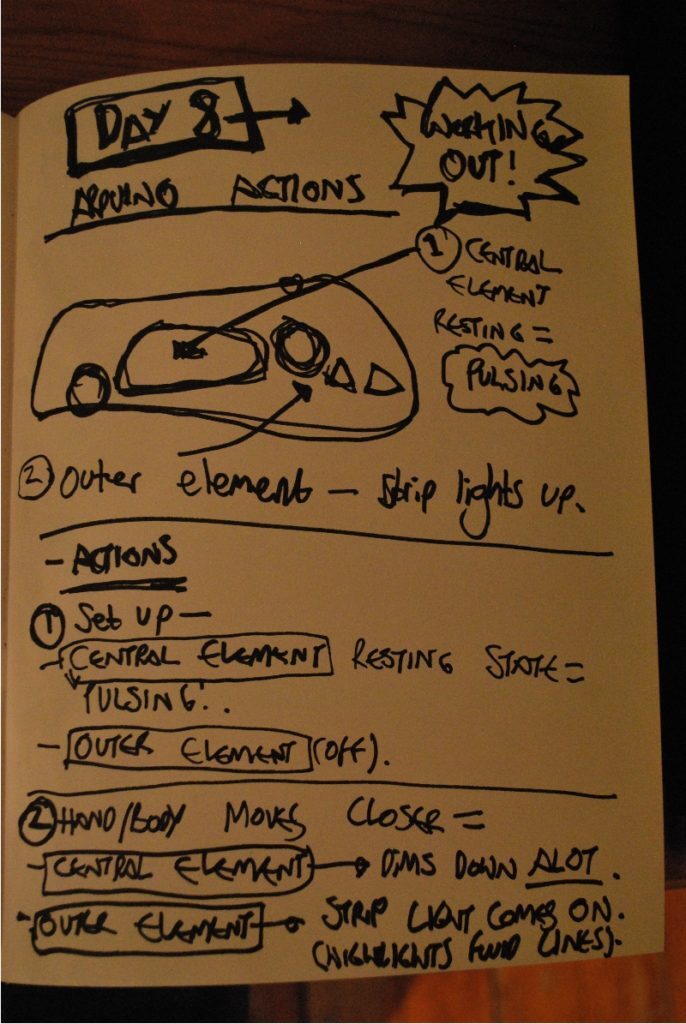 DAY 8
WORKING
OUT!
ARDUINO ACTIONS
① CENTRAL
ELEMENT
RESTING =
PULSING
② Outer element — strip lights up.
- ACTIONS
① Set up —
- CENTRAL ELEMENT RESTING STATE =
'PULSING'..
- OUTER ELEMENT (OFF).
② HAND/BODY MOVES CLOSER =
- CENTRAL ELEMENT → DIMS DOWN ALOT.
- OUTER ELEMENT → STRIP LIGHT COMES ON.
(HIGHLIGHTS FLUID LINES).